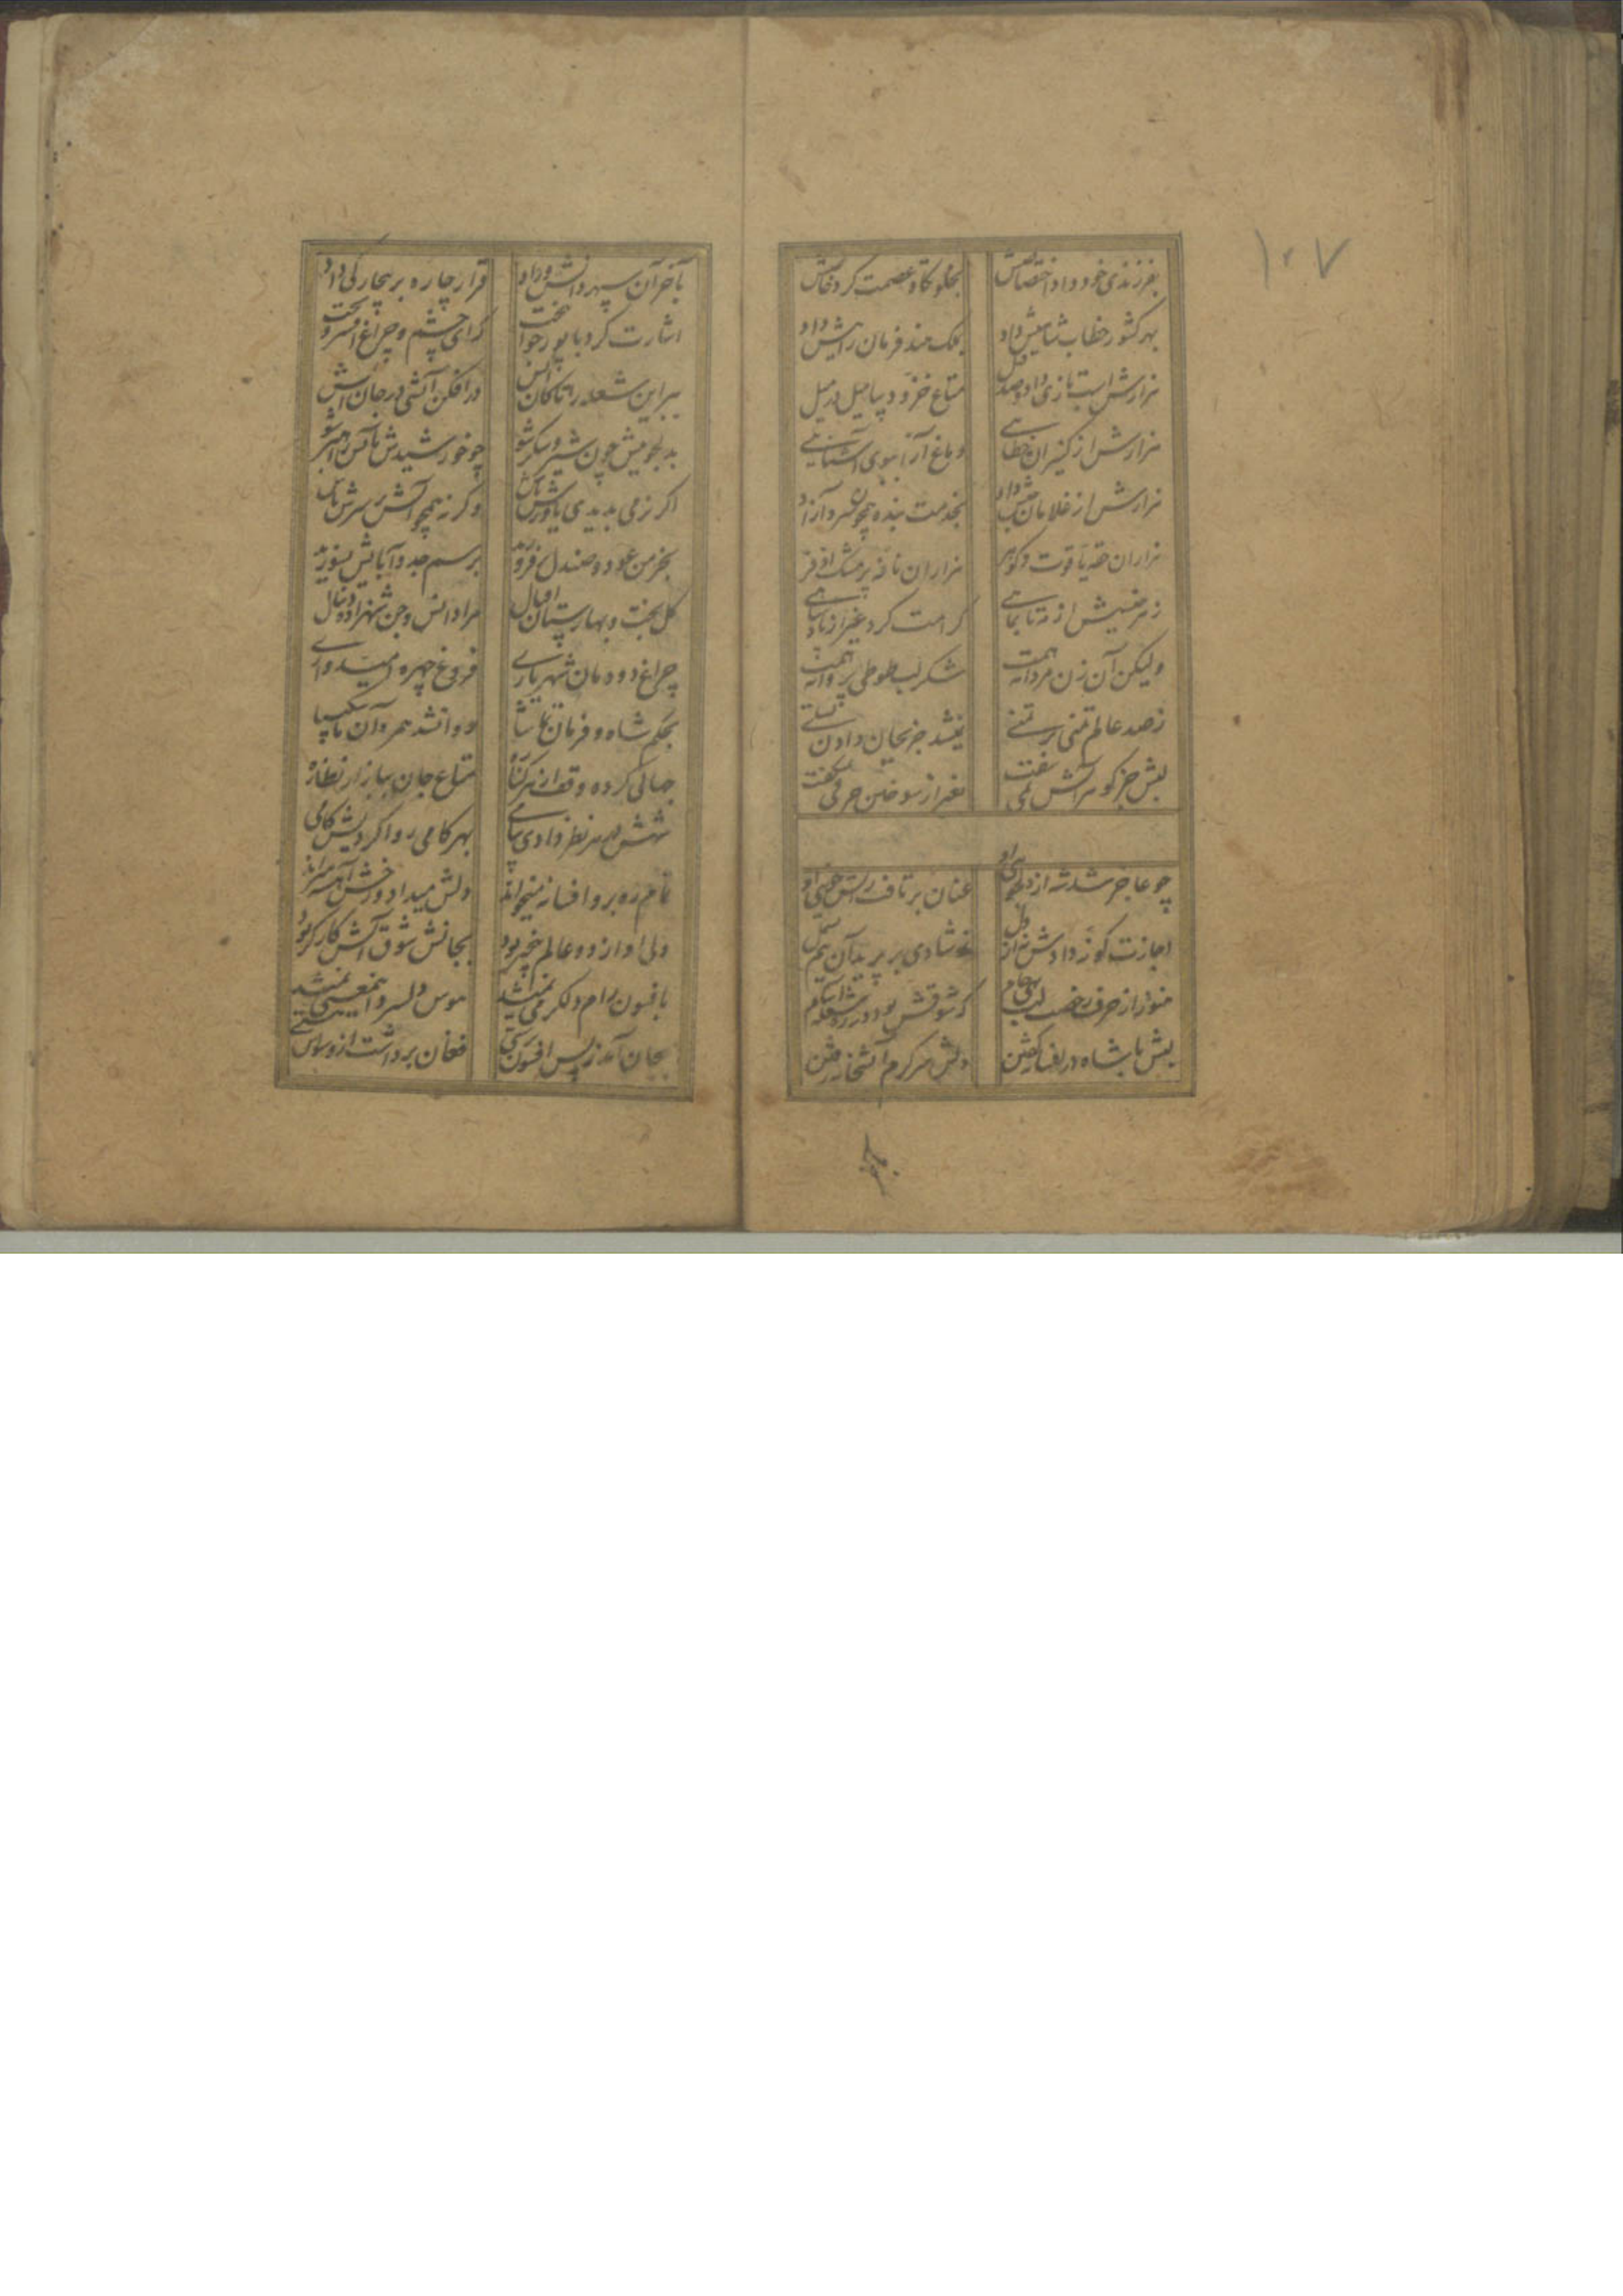 ۱۰۷
بفرزندی خود داد اختصاصش بخلوتگاه عصمت کرد خاصش
بهر کشور خطاب شاهیش داد بملک هند فرمان راهیش داد
هزارش اسب تازی داد و صد فیل متاع خز و دیبا میل در میل
هزارش از کنیزان خطایی دماغ آرا ببوی آشنایی
هزارش از غلامان داد بخدمت بنده همچون سرو آزاد
هزاران حقه یاقوت و گوهر هزاران نافه پر مشک اذفر
ز هر جنسیش از مه تا بماهی کرامت کرد غیر از پادشاهی
ولیکن آن زن مردانه همت شکر لب طوطی پروانه همت
ز صد عالم تمنی بر تمنی نمیشد جز بجان دادن تسلی
لبش جز گوهر آتش نمی سفت بغیر از سوختن حرفی نمیگفت
چو عاجز شد شه از دلجویی او عنان برتافت ز آتش خویی او
اجازت گونه دادش نه از دل ز شادی بر پرید آن نیم بسمل
هنوز از حرف رخصت لب که شوقش بود در ره شعله آشام
لبش با شاه در افسانه گفتن دلش سرگرم آتشخانه رفتن
بآخر آن سپهر دانش و داد قرار چاره بر بیچارگی داد
اشارت کرد با پور جوانبخت که ای چشم و چراغ افسر و تخت
ببر این شعله را تا کان آتش در افکن آتشی در جان آتش
بدلجوییش چون شیر و شکر شو چو خورشیدش بآتش راهبر شو
اگر نرمی بدیدی یاورش باش وگرنه همچو آتش بر سرش باش
بخرمن عود و صندل برفروزید برسم جد و آبایش بسوزید
گل بخت و بهارستان اقبال مراد انس و جن شهزاده دنیال
چراغ دودمان شهریاری فروغ چهره امیدواری
بحکم شاه و فرمان تماشا روان شد همره آن ناشکیبا
جهانی کرده وقف از هر کناره متاع جان ببازار نظاره
شهش در هر نظر دادی پیامی بهر گامی روا کردیش کامی
تمام ره برو افسانه میخواند دلش میداد و رخش آهسته میراند
ولی او از دو عالم بیخبر بود بجانش شوق آتش کارگر بود
بافسون رام دلگرمی نمیشد هوس دلسرد از بیمعنی نمیشد
بجان آمد ز بس افسون پرستی فغان برداشت از وسواس هستی